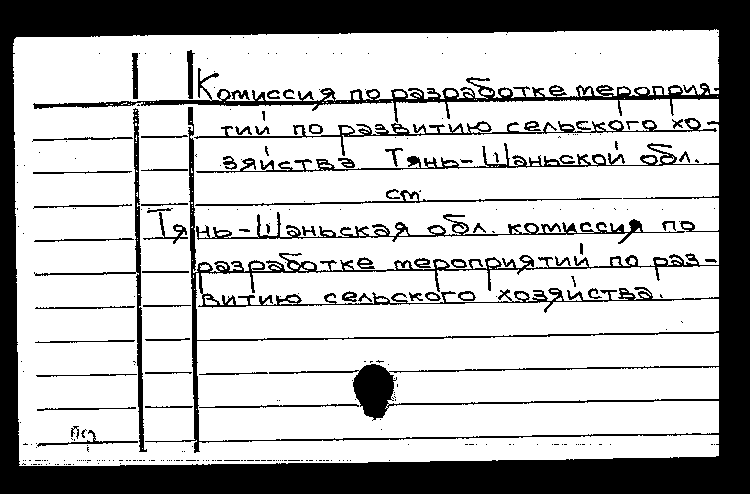 Комиссия по разработке мероприя-
тий по развитию сельского хо-
зяйства Тянь-Шаньской обл.
ст.
Тянь-Шаньская обл. комиссия по
разработке мероприятий по раз-
витию сельского хозяйства.